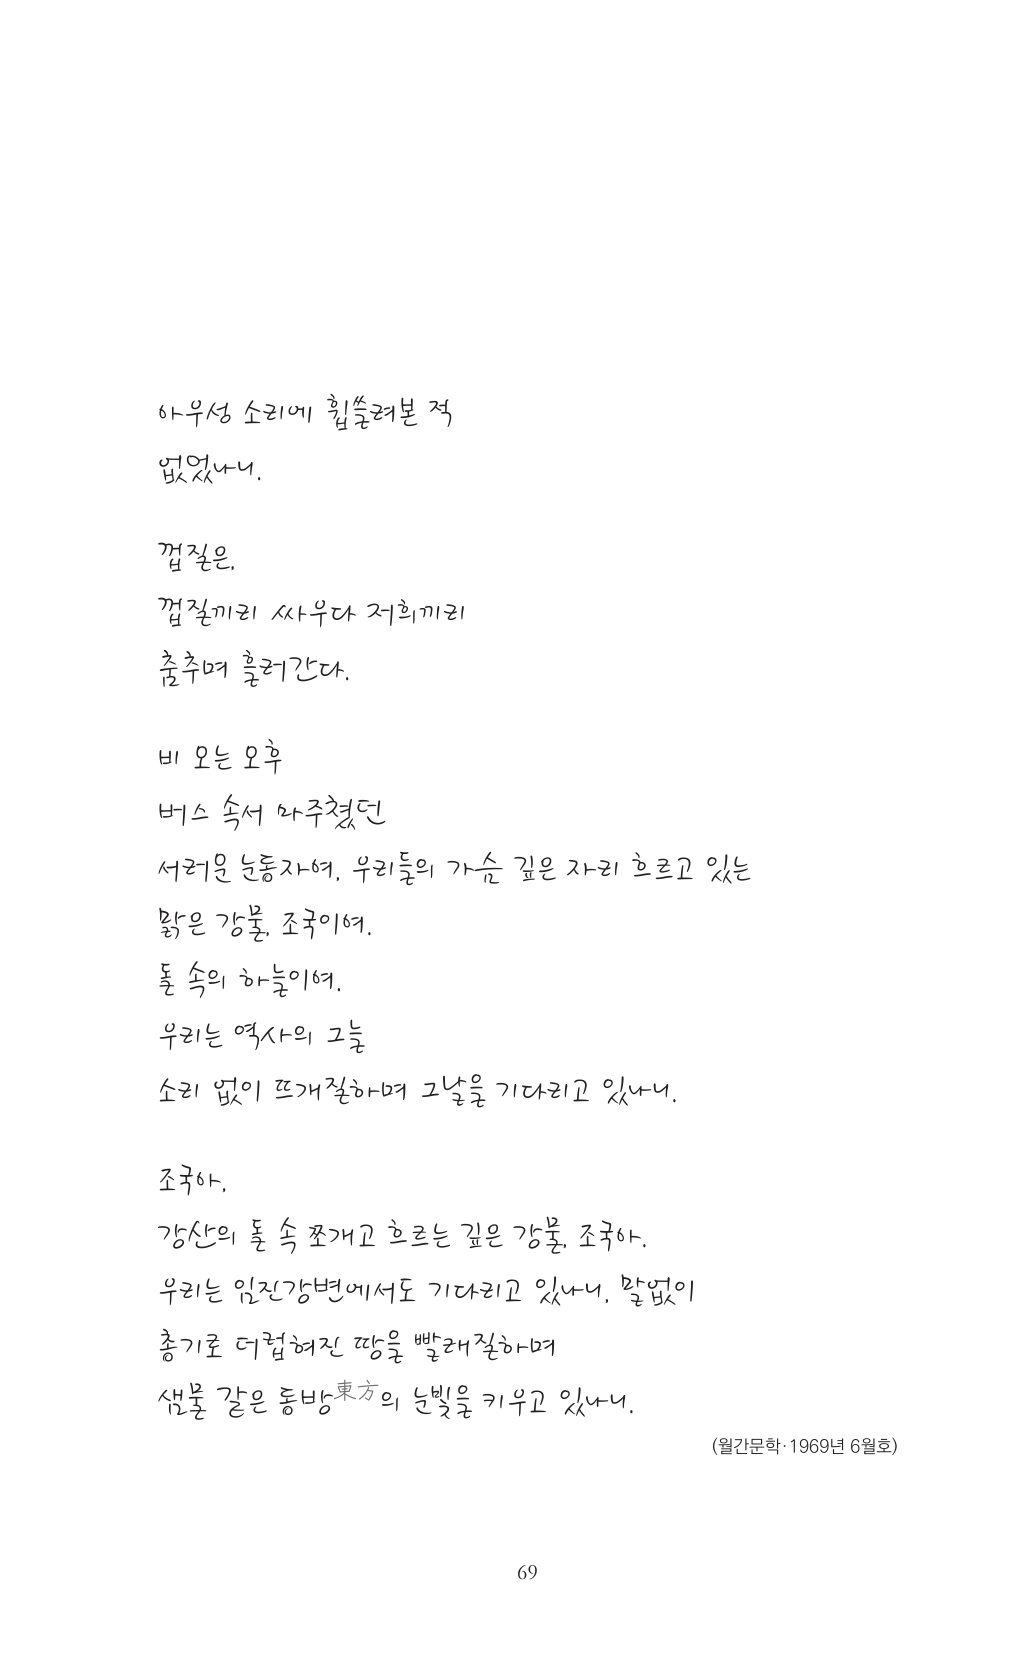 아우성 소리에 휩쓸려본 적
없었나니.
껍질은,
껍질끼리 싸우다 저희끼리
춤추며 흘러간다.
비 오는 오후
버스 속서 마주쳤던
서러운 눈동자여, 우리들의 가슴 깊은 자리 흐르고 있는
맑은 강물, 조국이여.
돌 속의 하늘이여.
우리는 역사의 그늘
소리 없이 뜨개질하며 그날을 기다리고 있나니.
조국아,
강산의 돌 속 쪼개고 흐르는 깊은 강물, 조국아.
우리는 임진강변에서도 기다리고 있나니, 말없이
총기로 더럽혀진 땅을 빨래질하며
샘물 같은 동방東方의 눈빛을 키우고 있나니.
(월간문학·1969년 6월호)
69